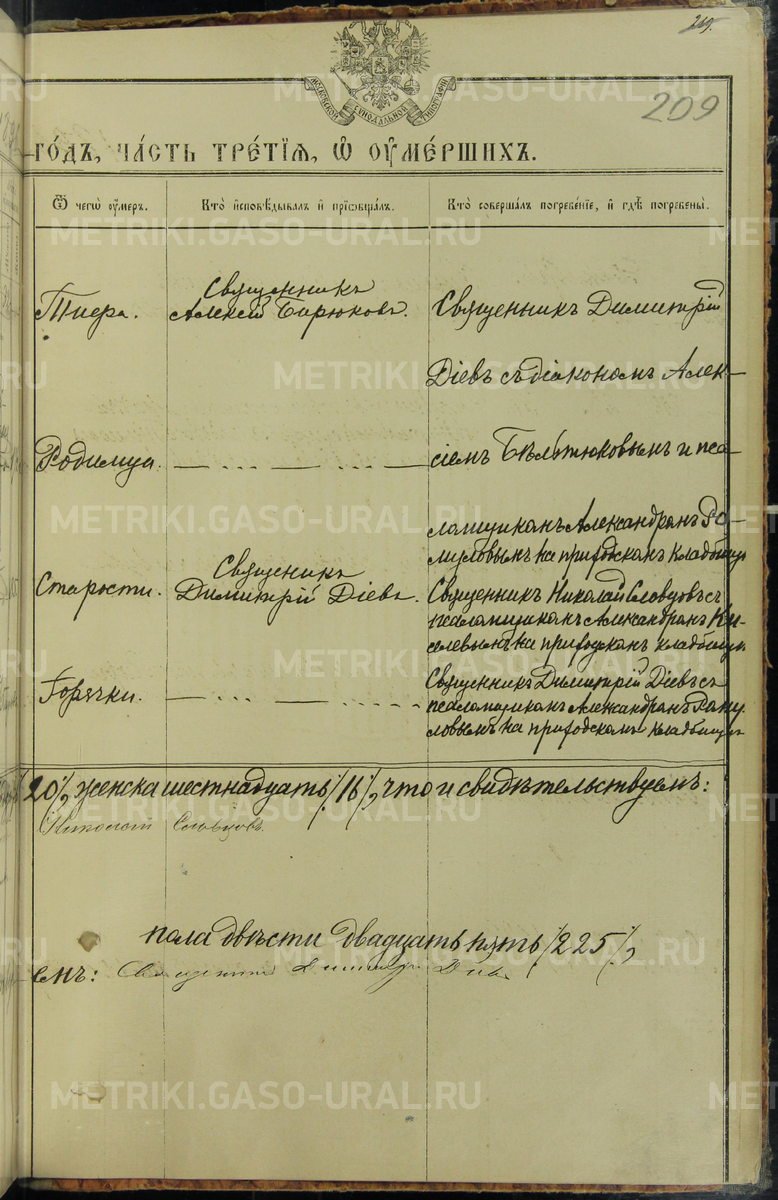 209
МОСКОВСКОЙ СѴНОДАЛЬНОЙ ТИПОГРАФІИ
ГО́ДЪ, ЧА́СТЬ ТРЕ́ТІѦ, Ѡ ОУ҆МЕ́РШИХЪ.
Ѿ чегѡ̀ оу҆́мер.
Кто̀ и҆сповѣ́дывалъ и҆ прїѡбща́лъ.
Кто̀ соверша́лъ погребе́нїе, и҆ гдѣ̀ погребены̀.
Тиера.
Священникъ
Алексій Бирюковъ.
Священникъ Димитрій
Діевъ съ діакономъ Алек-
Родимца.
сіемъ Бѣльтюковымъ и пса-
ломщикомъ Александромъ Ра-
муловымъ на приходскомъ кладбищѣ
Старости.
Священикъ
Димитрій Діевъ.
Священникъ Николай Словцовъ съ
псаломщикомъ Александромъ Ки-
селевымъ на приходскомъ кладбищѣ
Горячки.
Священникъ Димитрій Діевъ съ
псаломщикомъ Александромъ Раму
ловымъ на приходскомъ кладбищѣ
20/, женска шестнадцать /16/, что и свидѣтельствуемъ:
Николай Словцовъ.
пола двѣсти двадцать пять /225/,
емъ: Священникъ Димитрій Діевъ.
METRIKI.GASO-URAL.RU